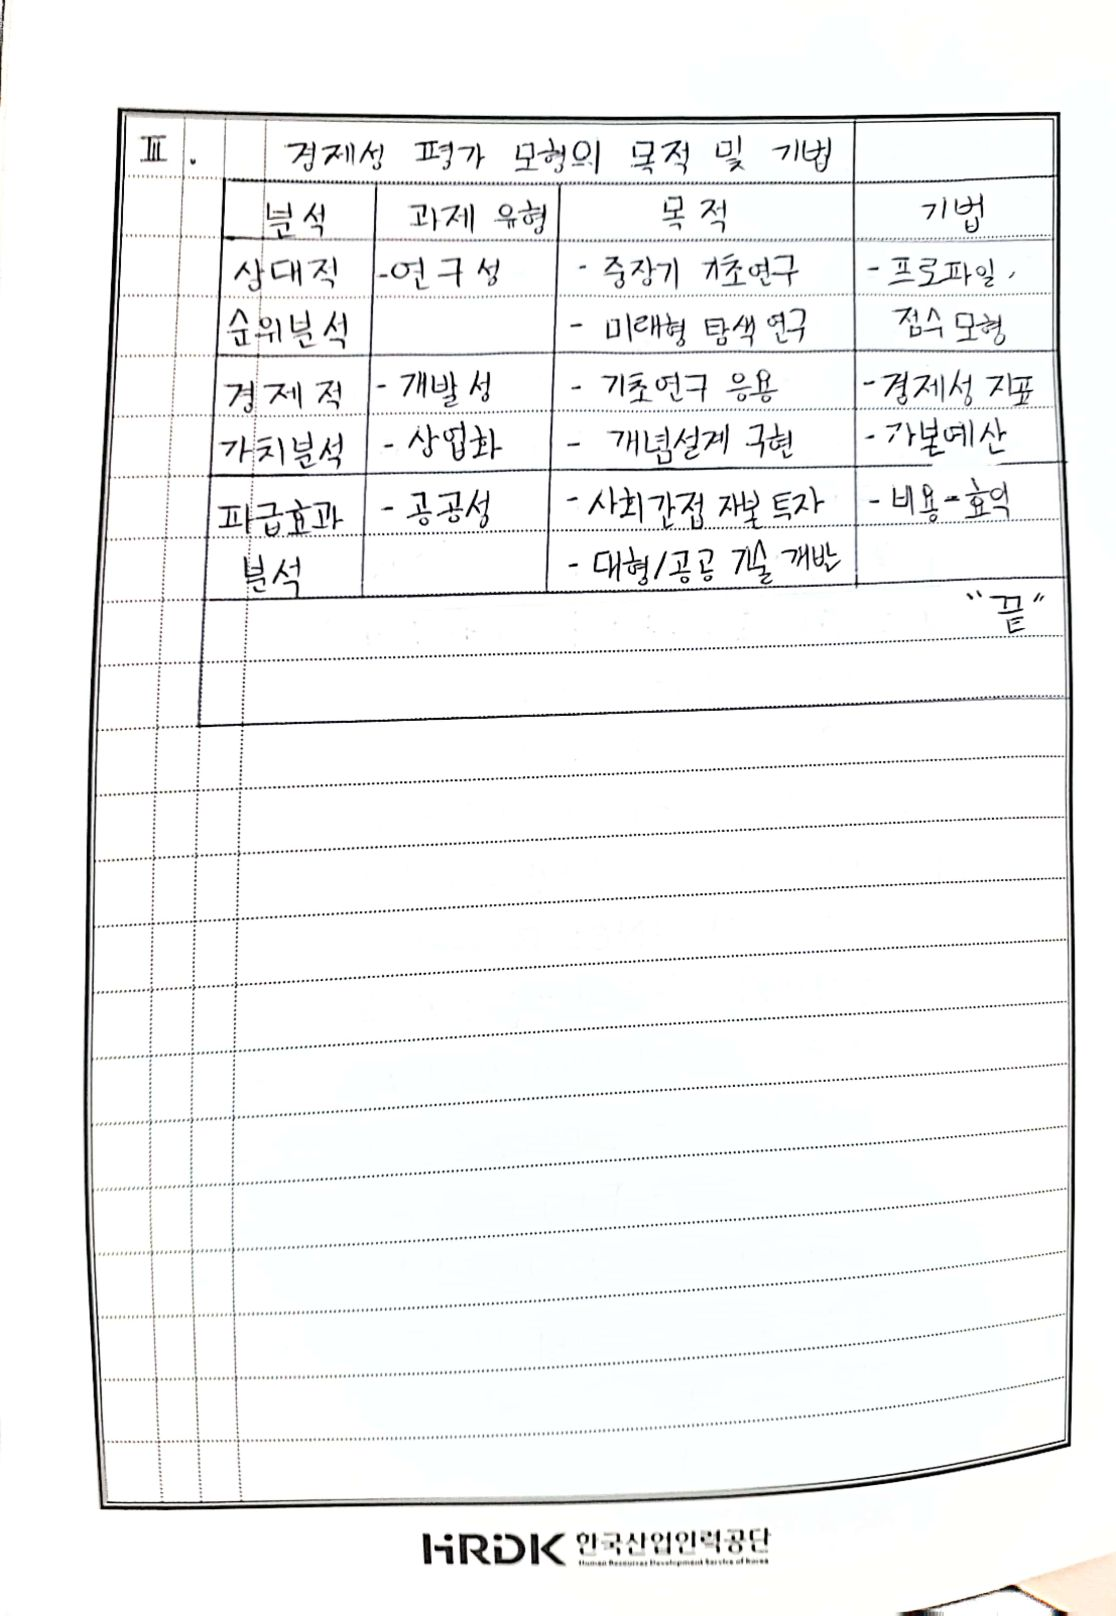 Ⅲ. 경제성 평가 모형의 목적 및 기법
분석 과제 유형 목적 기법
상대적 -연구성 - 중장기 기초연구 - 프로파일,
순위분석 - 미래형 탐색 연구 점수 모형
경제적 - 개발성 - 기초연구 응용 - 경제성 지표
가치분석 - 상업화 - 개념설계 구현 - 자본예산
파급효과 - 공공성 - 사회간접 자본 투자 - 비용-효익
분석 - 대형/공공 기술 개발
“끝”
HRDK 한국산업인력공단
Human Resources Development Service of Korea